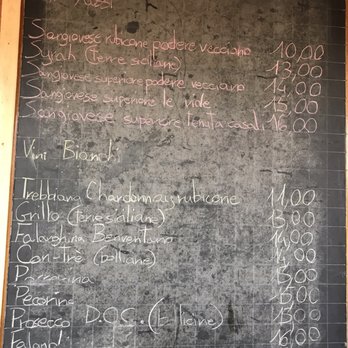 Rossi
Sangiovese rubicone podere vecciano 10,00
Syrah (terre siciliane) 13,00
Sangiovese superiore podere vecciano 14,00
Sangiovese superiore le 15,00
Sangiovese superiore tenuta casali 16,00
Vini Bianchi
Trebbiano Chardonnay rubicone 11,00
Grillo (terre siciliane) 13,00
Falanghina Beneventano 14,00
15,00
Passerina 15,00
Pecorino 15,00
Prosecco D.O.C. 15,00
16,00